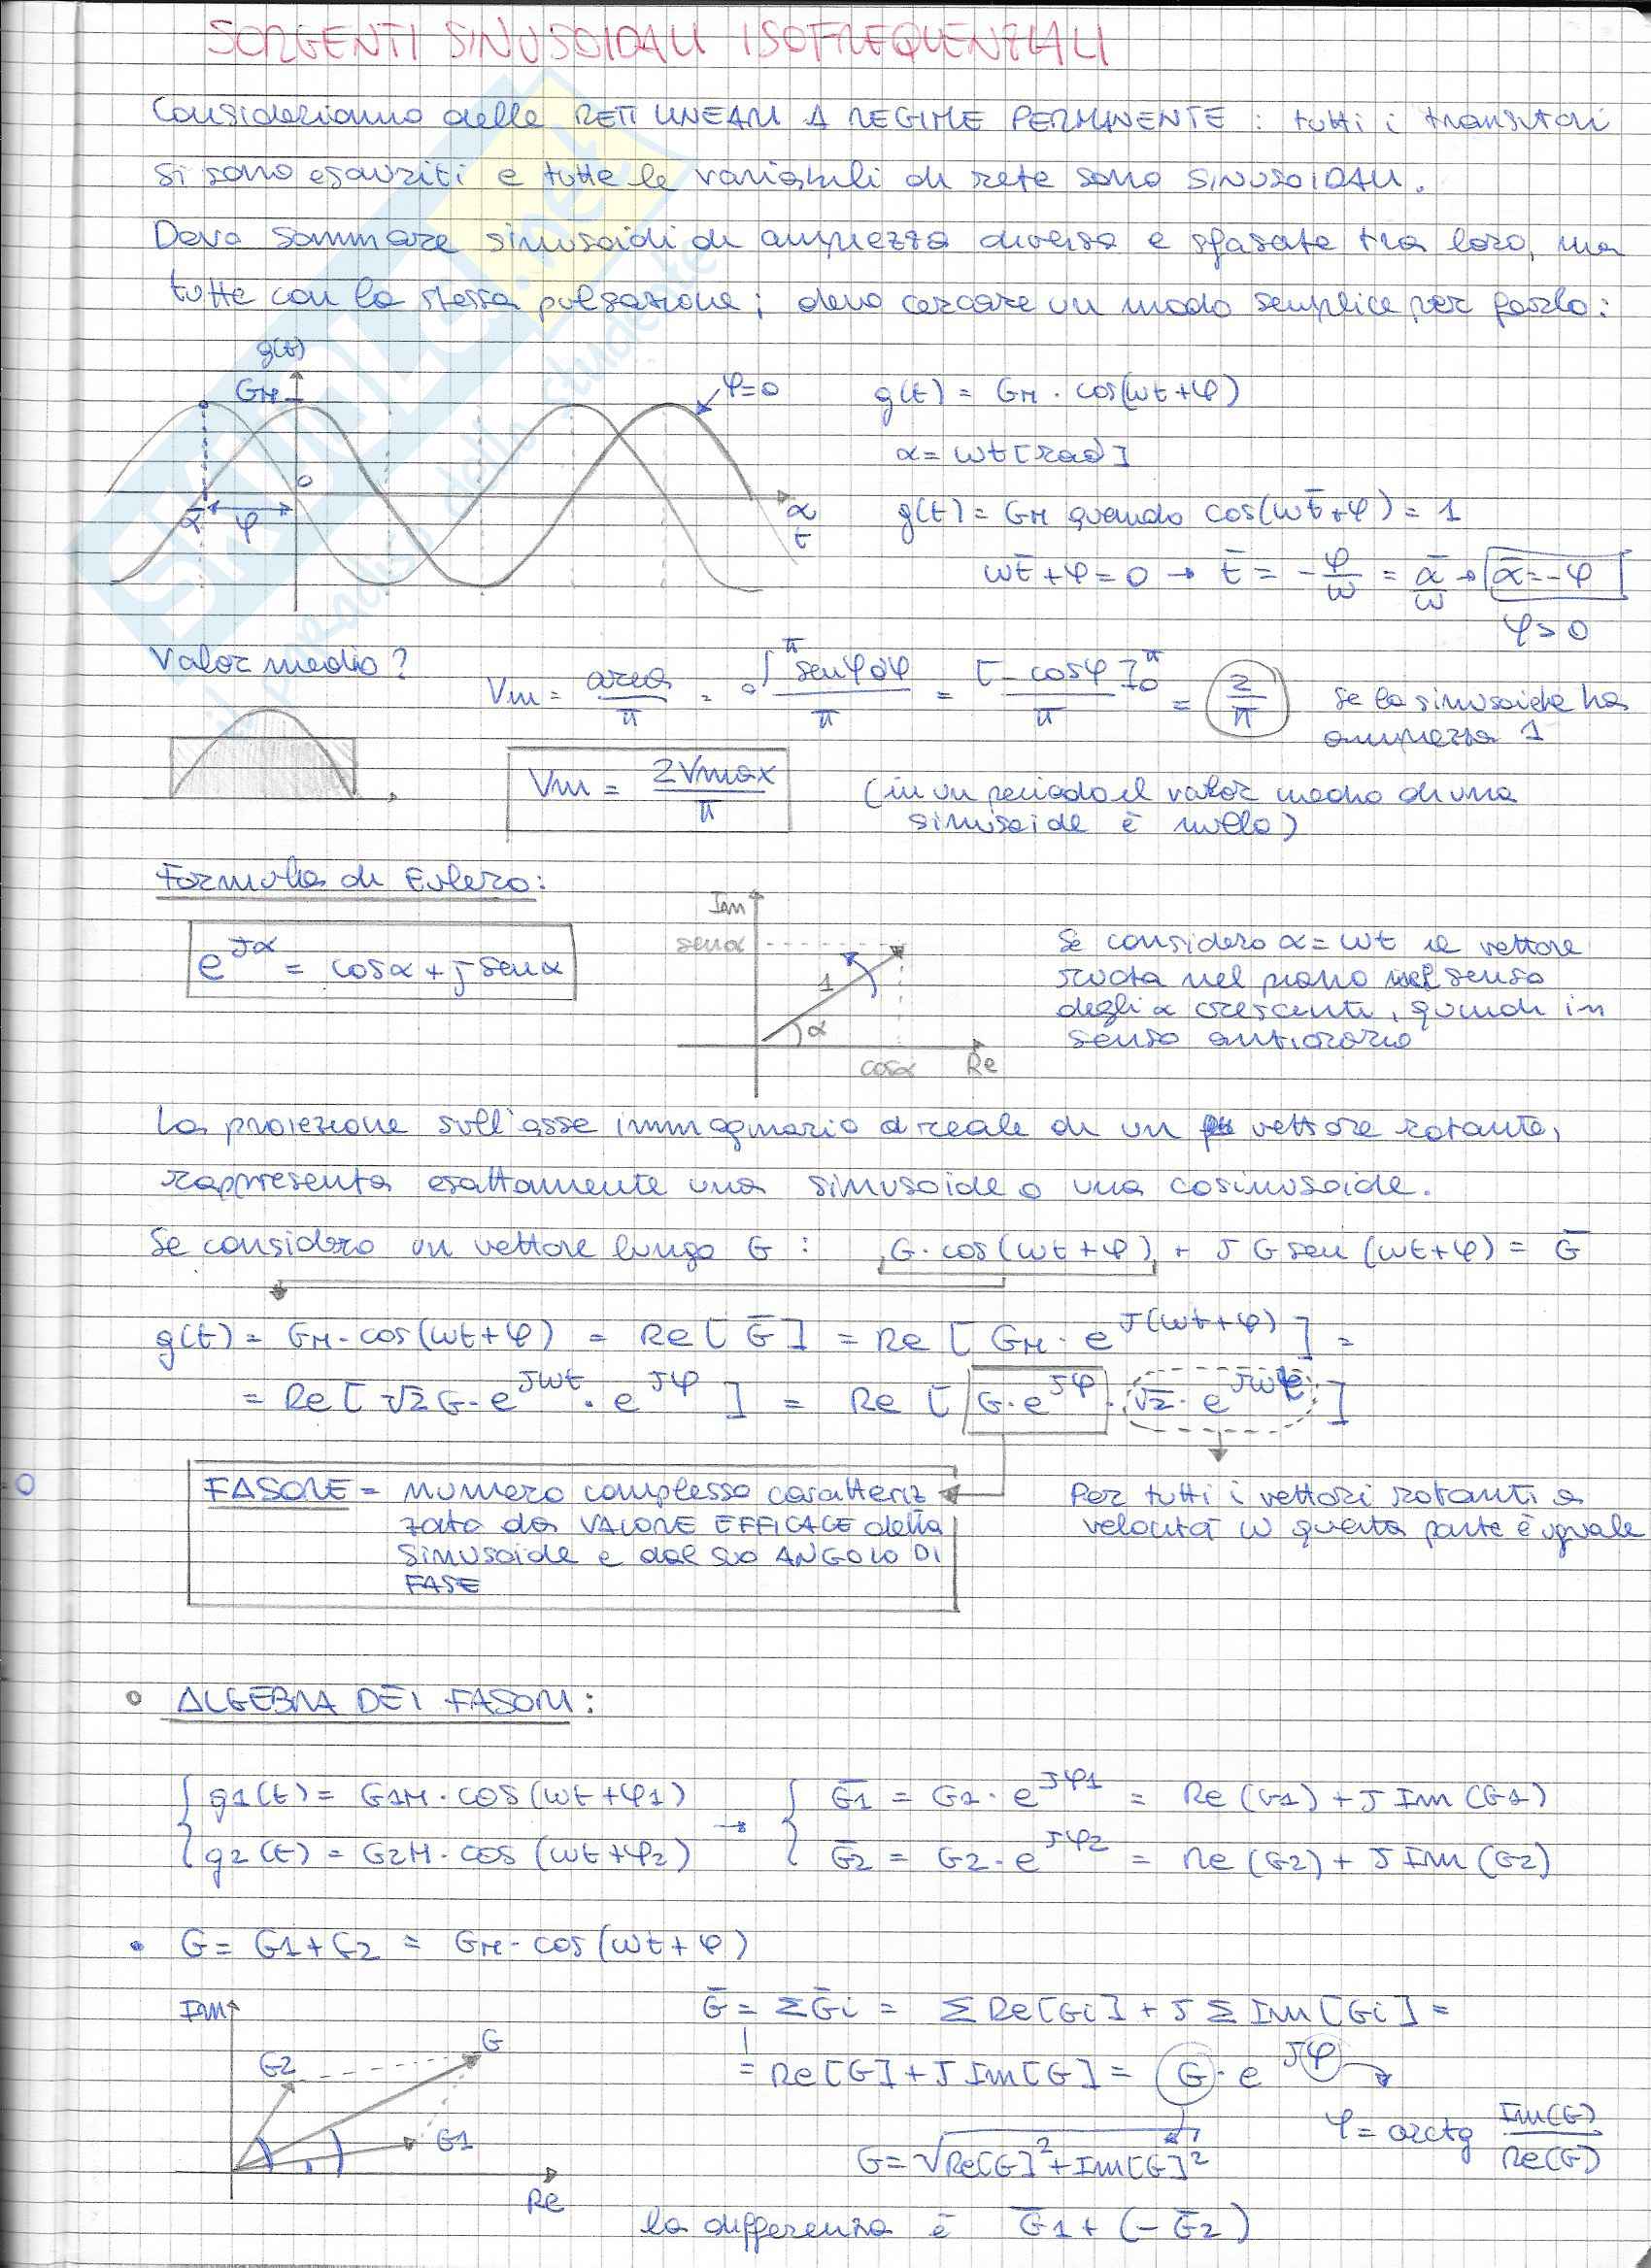 SORGENTI SINUSOIDALI ISOFREQUENZIALI
Consideriamo delle RETI LINEARI A REGIME PERMANENTE : tutti i transitori
si sono esauriti e tutte le variabili di rete sono SINUSOIDALI.
Devo sommare sinusoidi di ampiezza diversa e sfasate tra loro, ma
tutte con la stessa pulsazione; devo cercare un modo semplice per farlo:
g(t)
GM
φ=0
g(t) = GM · cos(ωt+φ)
α = ωt [rad]
0
ᾱ φ
α
t
g(t) = GM quando cos(ωt̄+φ) = 1
ωt̄ + φ = 0 → t̄ = -φ/ω = ᾱ/ω → ᾱ = -φ
φ > 0
Valor medio?
Vm = area/π = ∫₀^π senφdφ/π = [-cosφ]₀^π/π = 2/π se la sinusoide ha
ampiezza 1
Vm = 2Vmax/π (in un periodo il valor medio di una
sinusoide è nullo)
Formula di Eulero:
e^Jα = cosα + j senα
Im
senα
1
α
cosα Re
Se considero α = ωt il vettore
ruota nel piano nel senso
degli α crescenti, quindi in
senso antiorario
La proiezione sull'asse immaginario o reale di un vettore rotante,
rappresenta esattamente una sinusoide o una cosinusoide.
Se considero un vettore lungo G : G · cos(ωt+φ) + J G sen(ωt+φ) = Ḡ
g(t) = GM · cos(ωt+φ) = Re[Ḡ] = Re[GM · e^J(ωt+φ)] =
= Re[√2 G · e^Jωt · e^Jφ] = Re[G · e^Jφ · √2 · e^Jωt]
FASORE = numero complesso caratteriz
zato da VALORE EFFICACE della
sinusoide e dal suo ANGOLO DI
FASE
Per tutti i vettori rotanti a
velocità ω questa parte è uguale
ALGEBRA DEI FASORI :
g1(t) = G1M · cos(ωt+φ1) → Ḡ1 = G1 · e^Jφ1 = Re(G1) + J Im(G1)
g2(t) = G2M · cos(ωt+φ2) Ḡ2 = G2 · e^Jφ2 = Re(G2) + J Im(G2)
• G = G1 + G2 = GM · cos(ωt+φ)
Im
G
G2
G1
Re
Ḡ = ΣḠi = ΣRe[Gi] + J Σ Im[Gi] =
= Re[G] + J Im[G] = G · e^Jφ
φ = arctg Im(G)/Re(G)
G = √Re[G]² + Im[G]²
la differenza è Ḡ1 + (-Ḡ2)